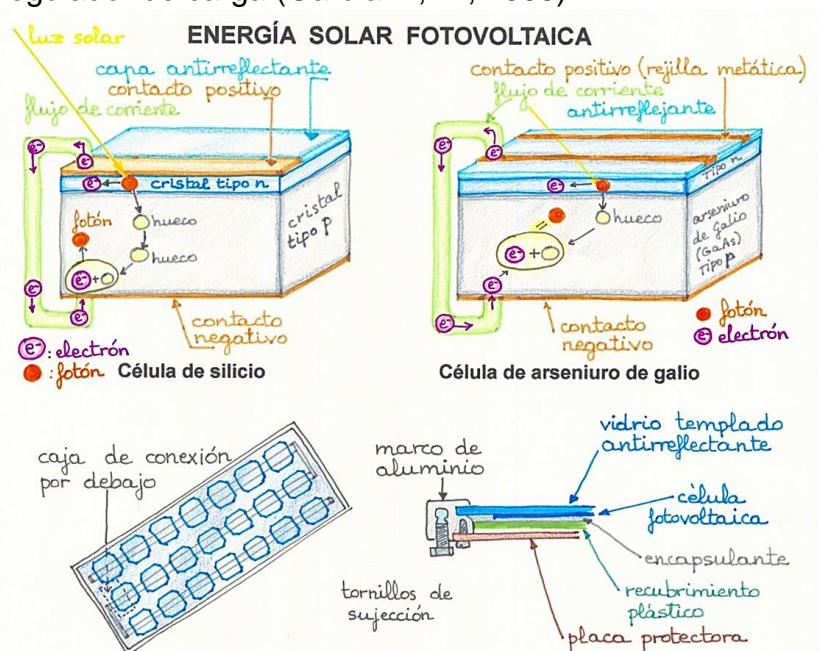 ENERGÍA SOLAR FOTOVOLTAICA
luz solar
capa antirreflectante
contacto positivo
flujo de corriente
e-
e-
e-
cristal tipo n
cristal
tipo P
fotón
hueco
hueco
e-
+
e-
e-
contacto
negativo
e-: electrón
: fotón
Célula de silicio
contacto positivo (rejilla metática)
flujo de corriente
antirreflejante
e-
e-
e-
Tipo n
hueco
arseniuro
de galio
(GaAs)
Tipo p
=
e-
+
e-
e-
contacto
negativo
fotón
e- electrón
Célula de arseniuro de galio
caja de conexión
por debajo
marco de
aluminio
vidrio templado
antirreflectante
célula
fotovoltaica
encapsulante
recubrimiento
plástico
placa protectora
tornillos de
sujección